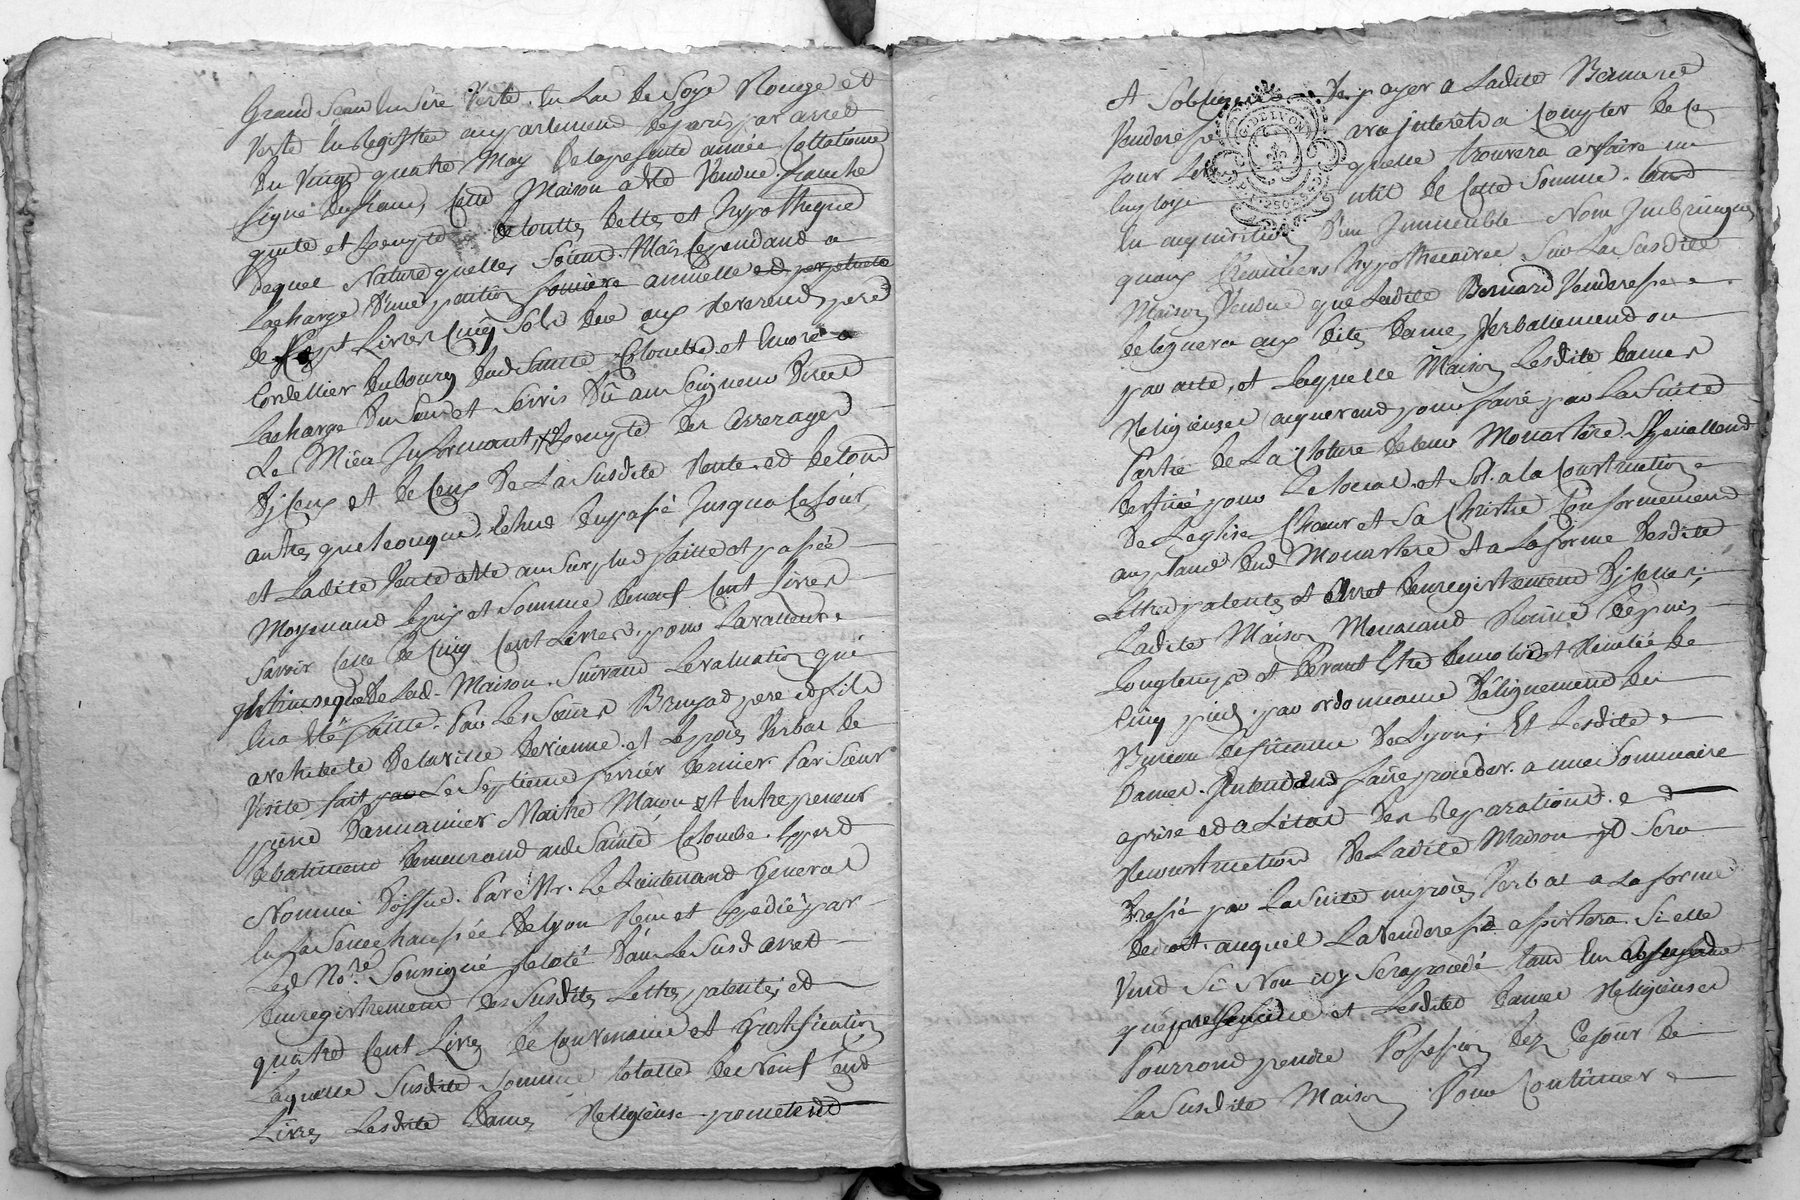 Grand Sceau en Cire Verte en Lac de Soye Rouge et
Verte En Registré au parlement de paris par arret
Du Vingt quatre May De la presente année Collationé
Signé Cette Maison a été Vendue franche
quitte et Exempte De toutte Dettes et hypotheque
De quel Nature quelles Soient Mais Cependand a
La charge D'une pention fonciere annuelle et perpetuele
de Sept Livres Cinq Sols Due aux Reverend pere
Cordellier Du bourg Dud Sainte Colombe et Encore a
La charge Du Cens et Servis Dû au Seigneur Direct
Le Mieu Informant, Exempte Des Arrerages
D'jceux et De Ceux De La Susdite Rente et De tout
autres quelconque, Echus Du passé Jusqua Ce jour,
et Ladite Vente a été au Surplus faitte et passée
Moyenand Le prix et Somme De neuf Cent Livres
Savoir Celle De Cinq Cent Livres pour La valleur
jntrinseque De Lad. Maison Suivand Levaluation qui
En a été faitte Par Les Sieurs Bruyad pere et fils
architecte De la ville De Vienne et Le procès Verbal De
Visite fait par Le Septieme fevrier Dernier Par Sieur
pierre Darmanier Maitre Maçon et Entrepreneur
De batiment Demeurand aud Sainte Colombe Expert
Nommé D'office Par Mr. Le Lieutenand General
En La Senechaussée De Lyon Reçu et Expedié par
Led No.re Soussigné Relaté Dans Le Susd arret
Denregistrement Des Susdites Lettres patentes et
quatre Cent Livres De Convenance et Gratification
Laquelle Susdite Somme totalle De Neuf Cent
Livres Lesdite Dames Religieuse promettent
Et Sobligent De payer a Ladite Bernard
Venderesse avec Interêt a Compter De Ce
Jour quelle trouvera a faire un
Employ utile De Cette Somme
En acquisition D'un Immeuble Non
quaux Creanciers hypothecaires Sur La Susdite
Maison Vendue que Ladite Bernard Venderesse
Deleguera aux Dites Dames Verballement ou
par acte, et Laquelle Maison Lesdite Dames
Religieuses acquerend pour faire par La Suite
Partie De La Cloture De leur Monastère Specialement
Destiné pour Le local et Sol a la Construction
De L'eglise Chœur et Sa Christie Conformement
au plan Dud Monastere et a La forme Desdite
Lettres patentes et Arret Denregistrement D'jcelles;
Ladite Maison Menacand Ruine Depuis
Longtemps et Devant Etre Demolie et Reculée De
Cinq pieds par ordonnance D'alignement Du
Bureau Des finance De Lyon; Et Lesdite
Dames Entendand faire proceder a une Sommaire
aprise et a L'état Des Reparations et
Reconstruction De Ladite Maison Il Sera
Dressé par La Suite un procès Verbal a La forme
De Droit auquel La venderesse assistera Si elle
Veut Si Non il y Sera procedé tant En absence
que presence et Lesdite Dames Religieuses
Pourrond prendre Possession Dez Ce jour De
La Susdite Maison Pour Continuer
G. DE LYON